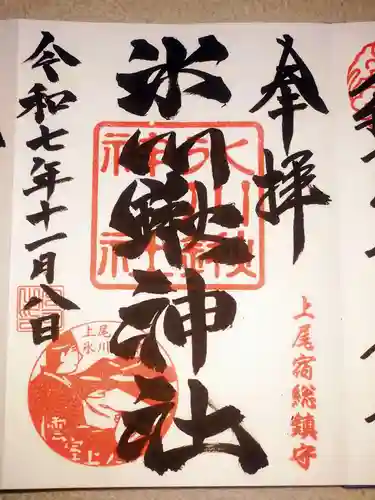 奉拝
上尾宿総鎮守
氷川鍬神社
氷川鍬神社
令和七年十一月八日
上尾
氷川